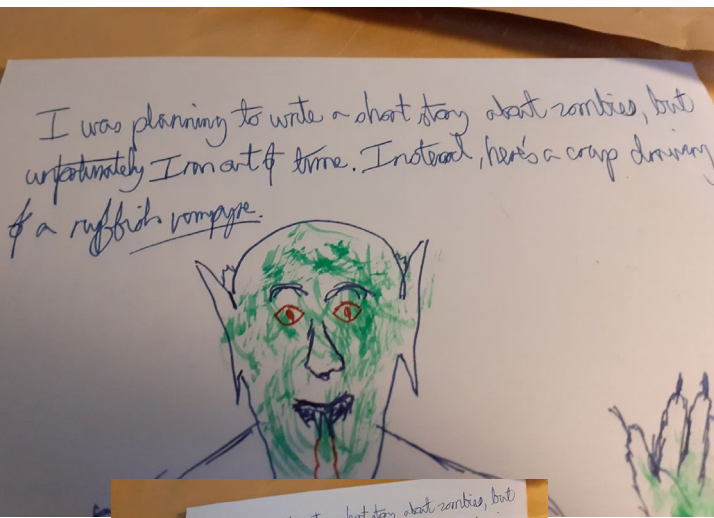 I was planning to write a short story about zombies, but
unfortunately I ran out of time. Instead, here's a crap drawing
of a ruffish vampyre.
short story about zombies, but